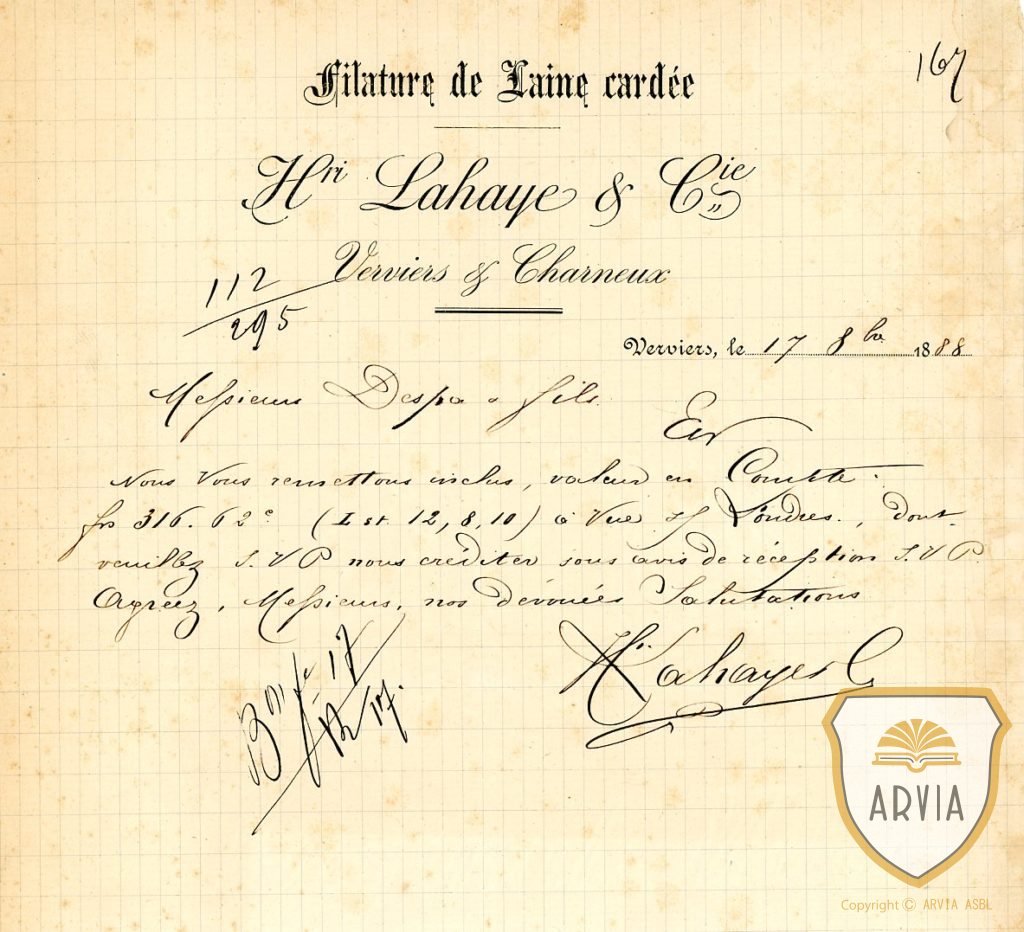 167
Filature de Laine cardée
Hri Lahaye & Cie
Verviers & Charneux
112
295
Verviers, le 17 8bre 1888
Messieurs Despa & fils
E/V
Nous Vous remettons inclus, valeur en Compte :
frs 316. 62 c (L st. 12, 8, 10) à Vue s/ Londres., dont
veuillez S. V P nous créditer sous avis de réception S. V P.
Agréez, Messieurs, nos dévouées Salutations
Hri Lahaye & C
17
12
17.
ARVIA
Copyright © ARVIA ASBL